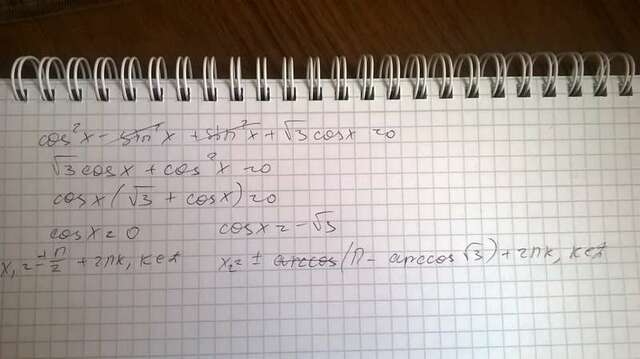 cos²x - sin²x + sin²x + √3 cosx = 0
√3 cosx + cos²x = 0
cosx(√3 + cosx) = 0
cosx = 0 cosx = -√3
x₁ = ± π/2 + 2πk, k∈Z x₂ = ± arccos(π - arccos√3) + 2πk, k∈Z